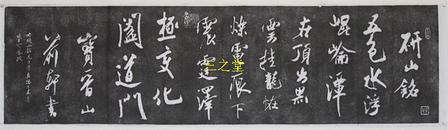 研山銘
五色水浮
崐崘潭
在頂出黑
雲挂龍怪
爍電痕下
震霆澤
極變化
闔道門
寶晉山
前軒書
三之堂